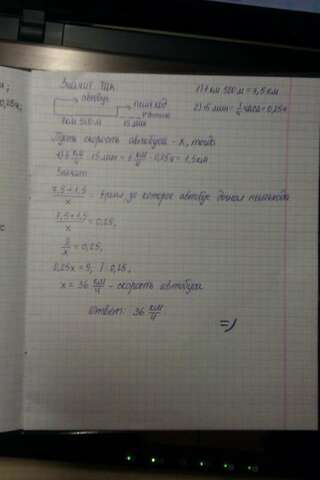 Значит так
автобус
пешеход
7км 500м
15 мин
1) 7км 500м = 7,5 км
2) 15 мин = 1/4 часа = 0,25ч
Пусть скорость автобуса - x, тогда
1) 6 км/ч · 15 мин = 6 км/ч · 0,25ч = 1,5км
Значит
7,5+1,5/x - время за которое автобус догнал пешехода
7,5+1,5/x = 0,25,
9/x = 0,25,
0,25x = 9, /:0,25,
x = 36 км/ч - скорость автобуса
Ответ: 36 км/ч
=)